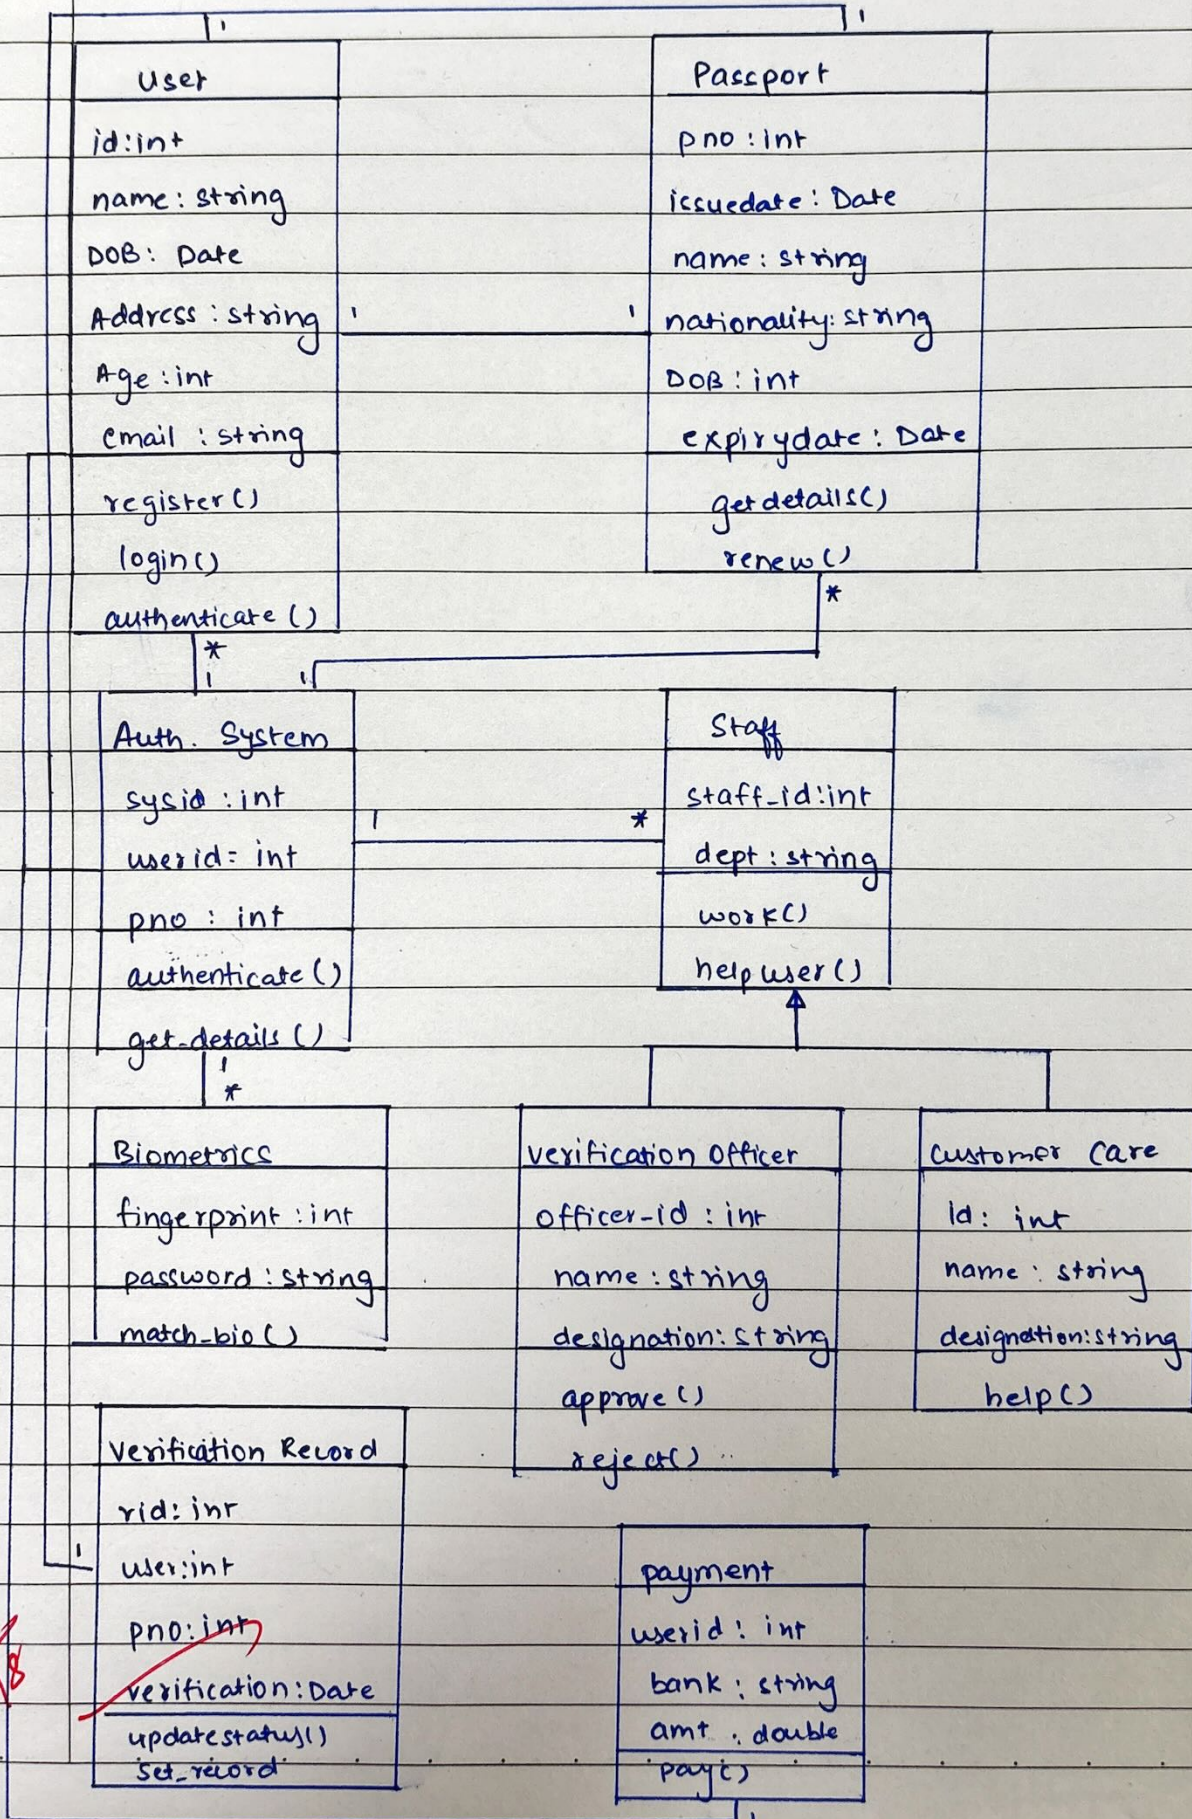 1
1
User
id:int
name: string
DOB: Date
Address: string
Age: int
email: string
register()
login()
authenticate()
Passport
pno: int
issuedate: Date
name: string
nationality: string
DOB: int
expirydate: Date
getdetails()
renew()
1
1
*
1
*
1
Auth. System
sysid: int
userid= int
pno: int
authenticate()
get-details()
1
*
Staff
staff-id:int
dept: string
work()
helpuser()
1
*
Biometrics
fingerprint: int
password: string
match-bio()
Verification Officer
officer-id: int
name: string
designation: string
approve()
reject()
Customer Care
Id: int
name: string
designation:string
help()
Verification Record
rid: int
user:int
pno: int
verification: Date
updatestatus()
set_record
1
payment
userid: int
bank: string
amt: double
pay()
8